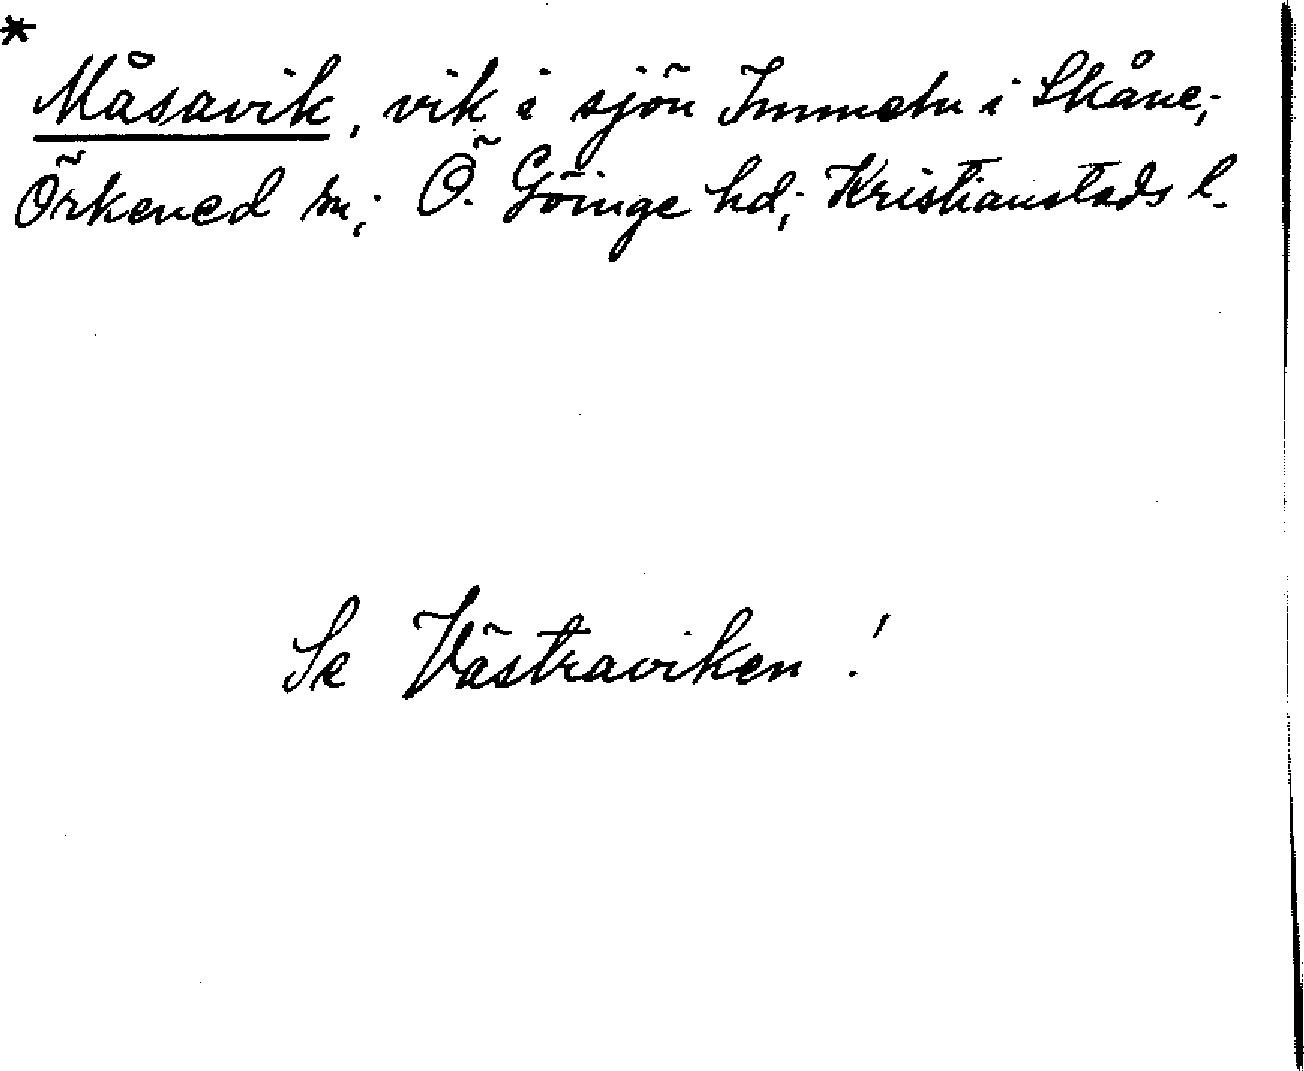 *
Måsavik, vik i sjön Immeln i Skåne;
Örkened sn; Ö. Göinge hd; Kristianstads l.
Se Västraviken!